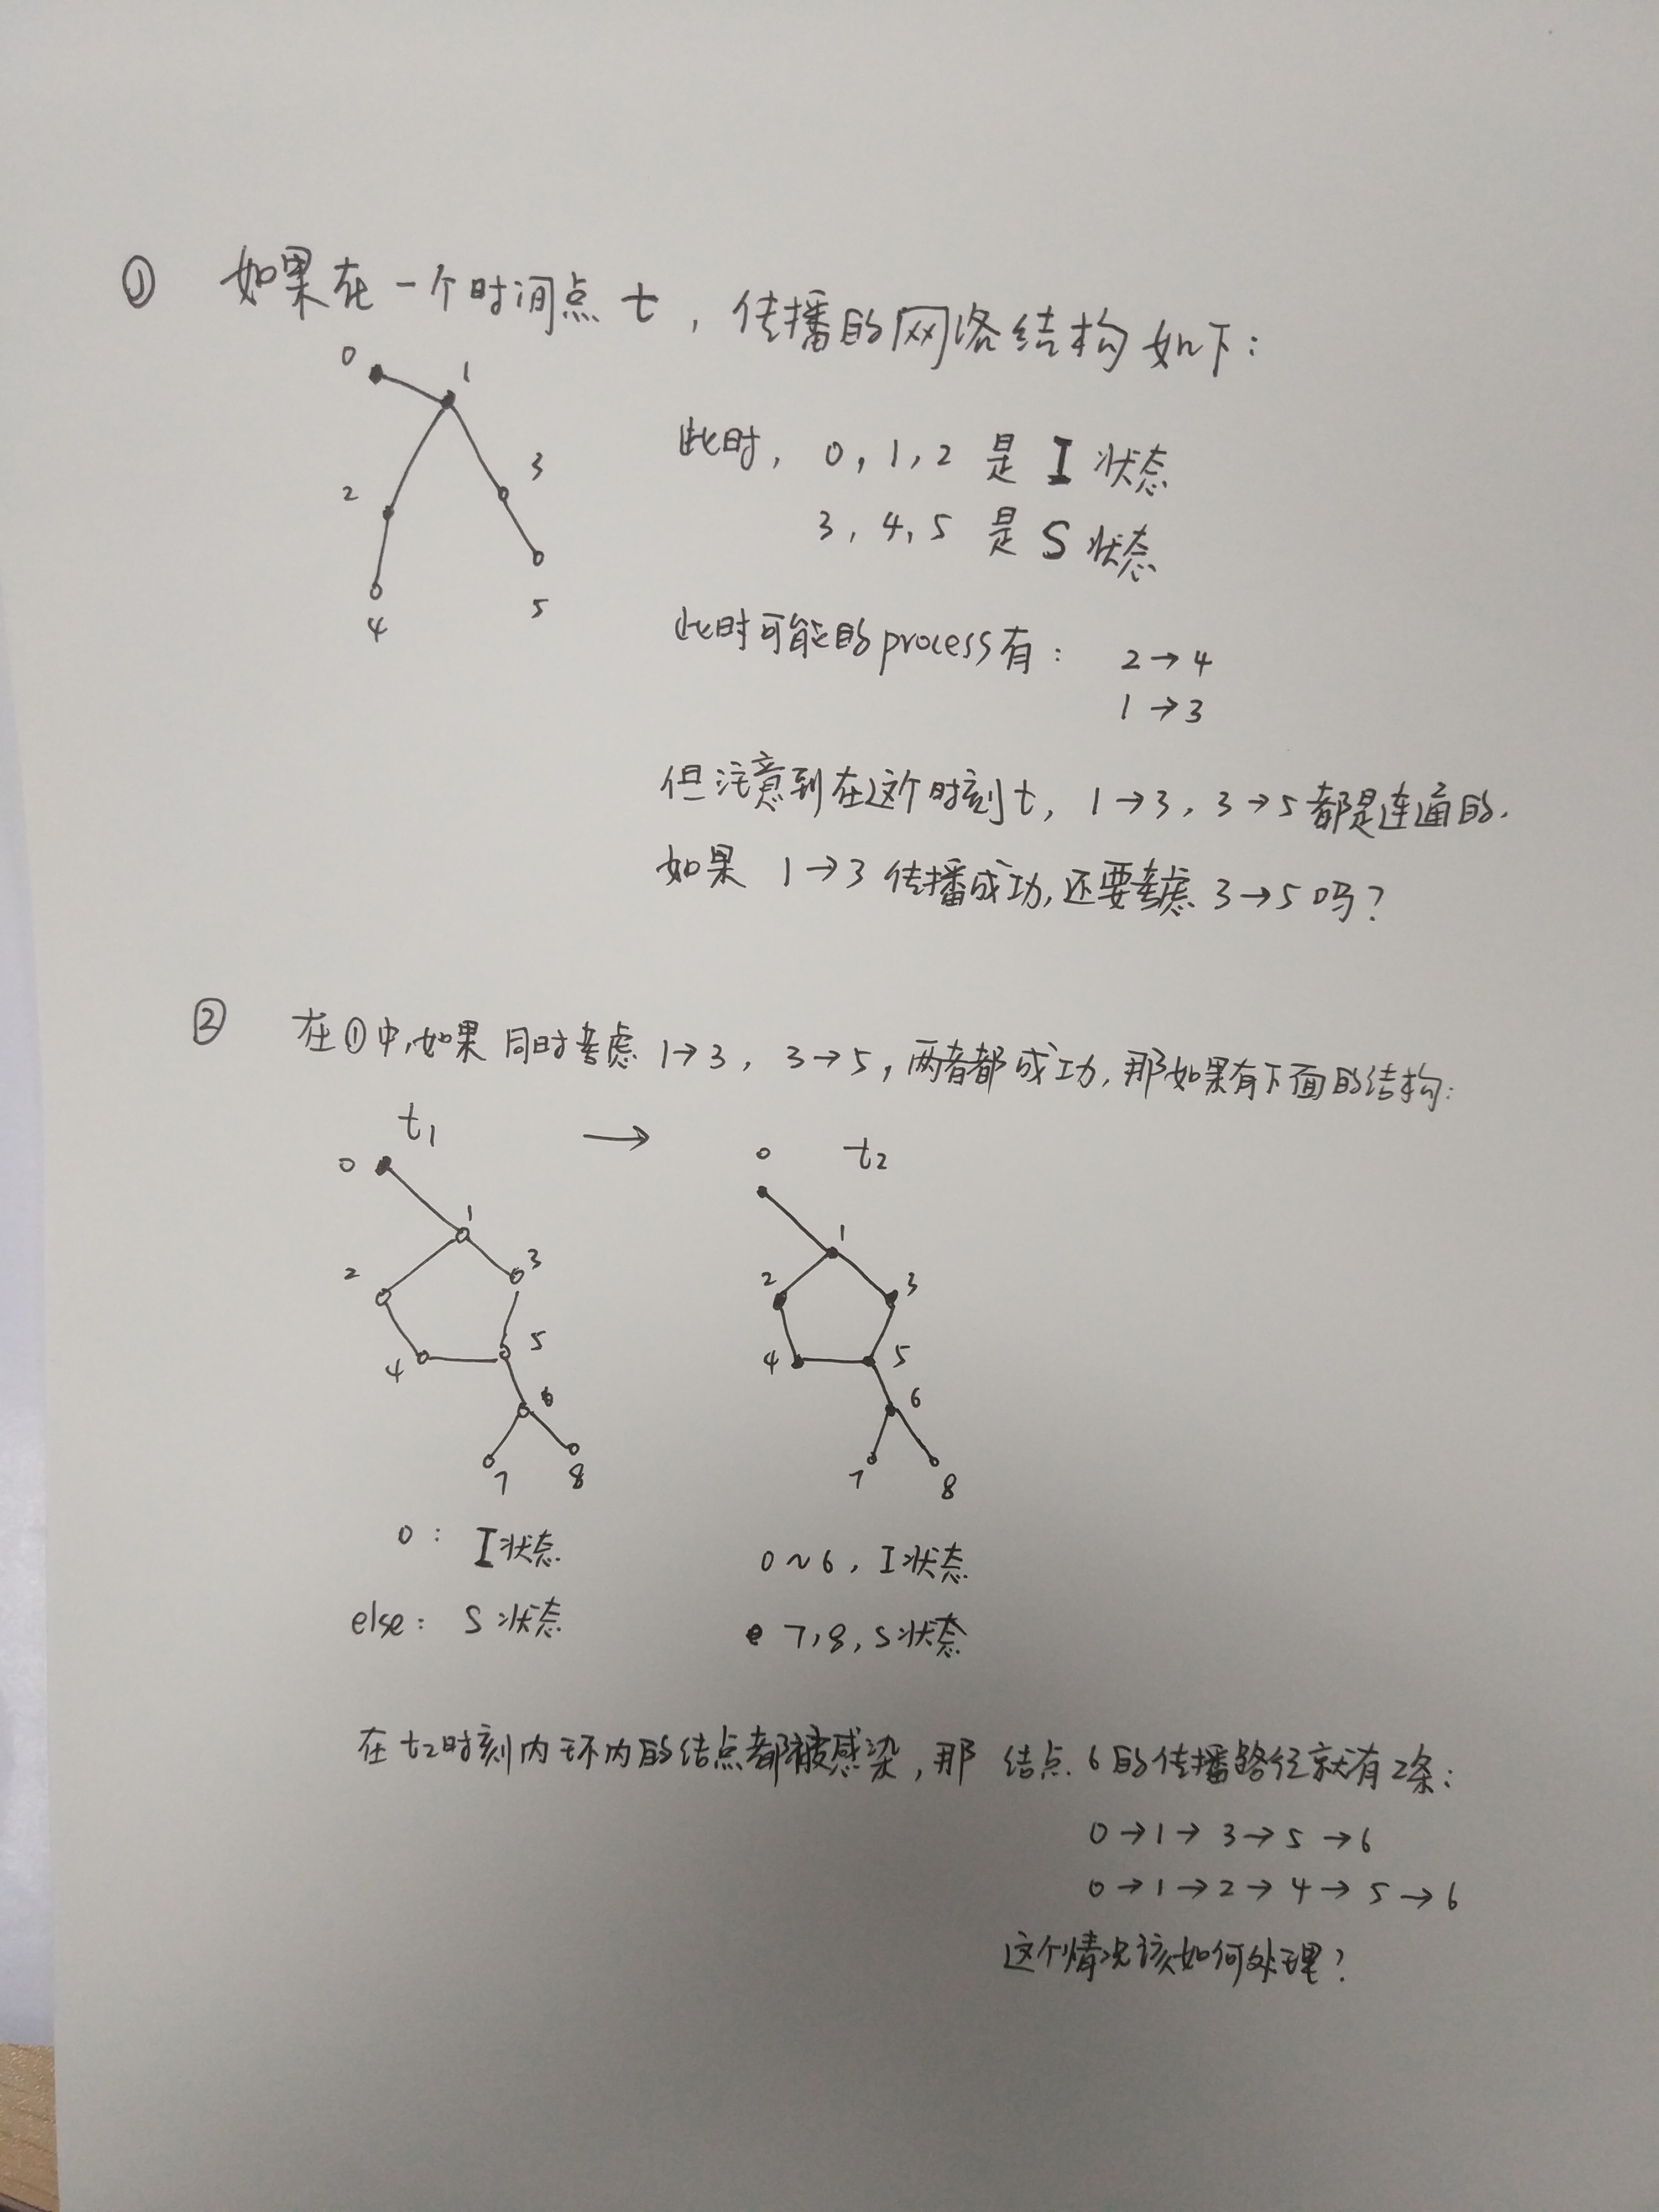 ① 如果在一个时间点 t , 传播的网络结构如下:
0
1
3
2
4
5
此时, 0, 1, 2 是 I 状态
3, 4, 5 是 S 状态
此时可能的process有: 2→4
1→3
但注意到在这个时刻t, 1→3, 3→5都是连通的.
如果 1→3 传播成功,还要考虑 3→5吗?
② 在①中,如果同时考虑 1→3, 3→5, 两者都成功, 那如果有下面的结构:
t1 → t2
0
1
2
3
4
5
6
7
8
0
1
2
3
4
5
6
7
8
0: I状态
else: S状态
0~6, I状态
7,8, S状态
在t2时刻内环内的结点都被感染, 那 结点6的传播路径就有2条:
0→1→3→5→6
0→1→2→4→5→6
这个情况该如何处理?